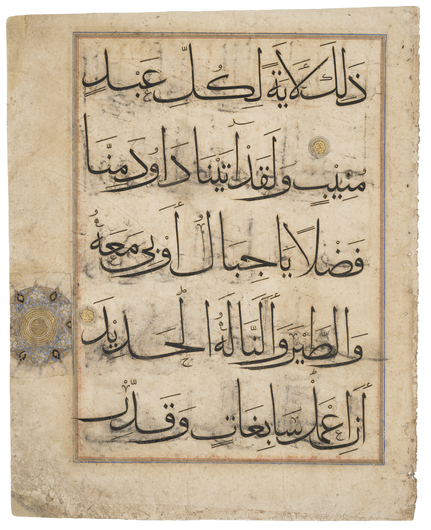 ذَٰلِكَ لَآيَةً لِكُلِّ عَبْدٍ
مُنِيبٍ وَلَقَدْ آتَيْنَا دَاوُدَ مِنَّا
فَضْلًا يَا جِبَالُ أَوِّبِي مَعَهُ
وَالطَّيْرَ وَأَلَنَّا لَهُ الْحَدِيدَ
أَنِ اعْمَلْ سَابِغَاتٍ وَقَدِّرْ